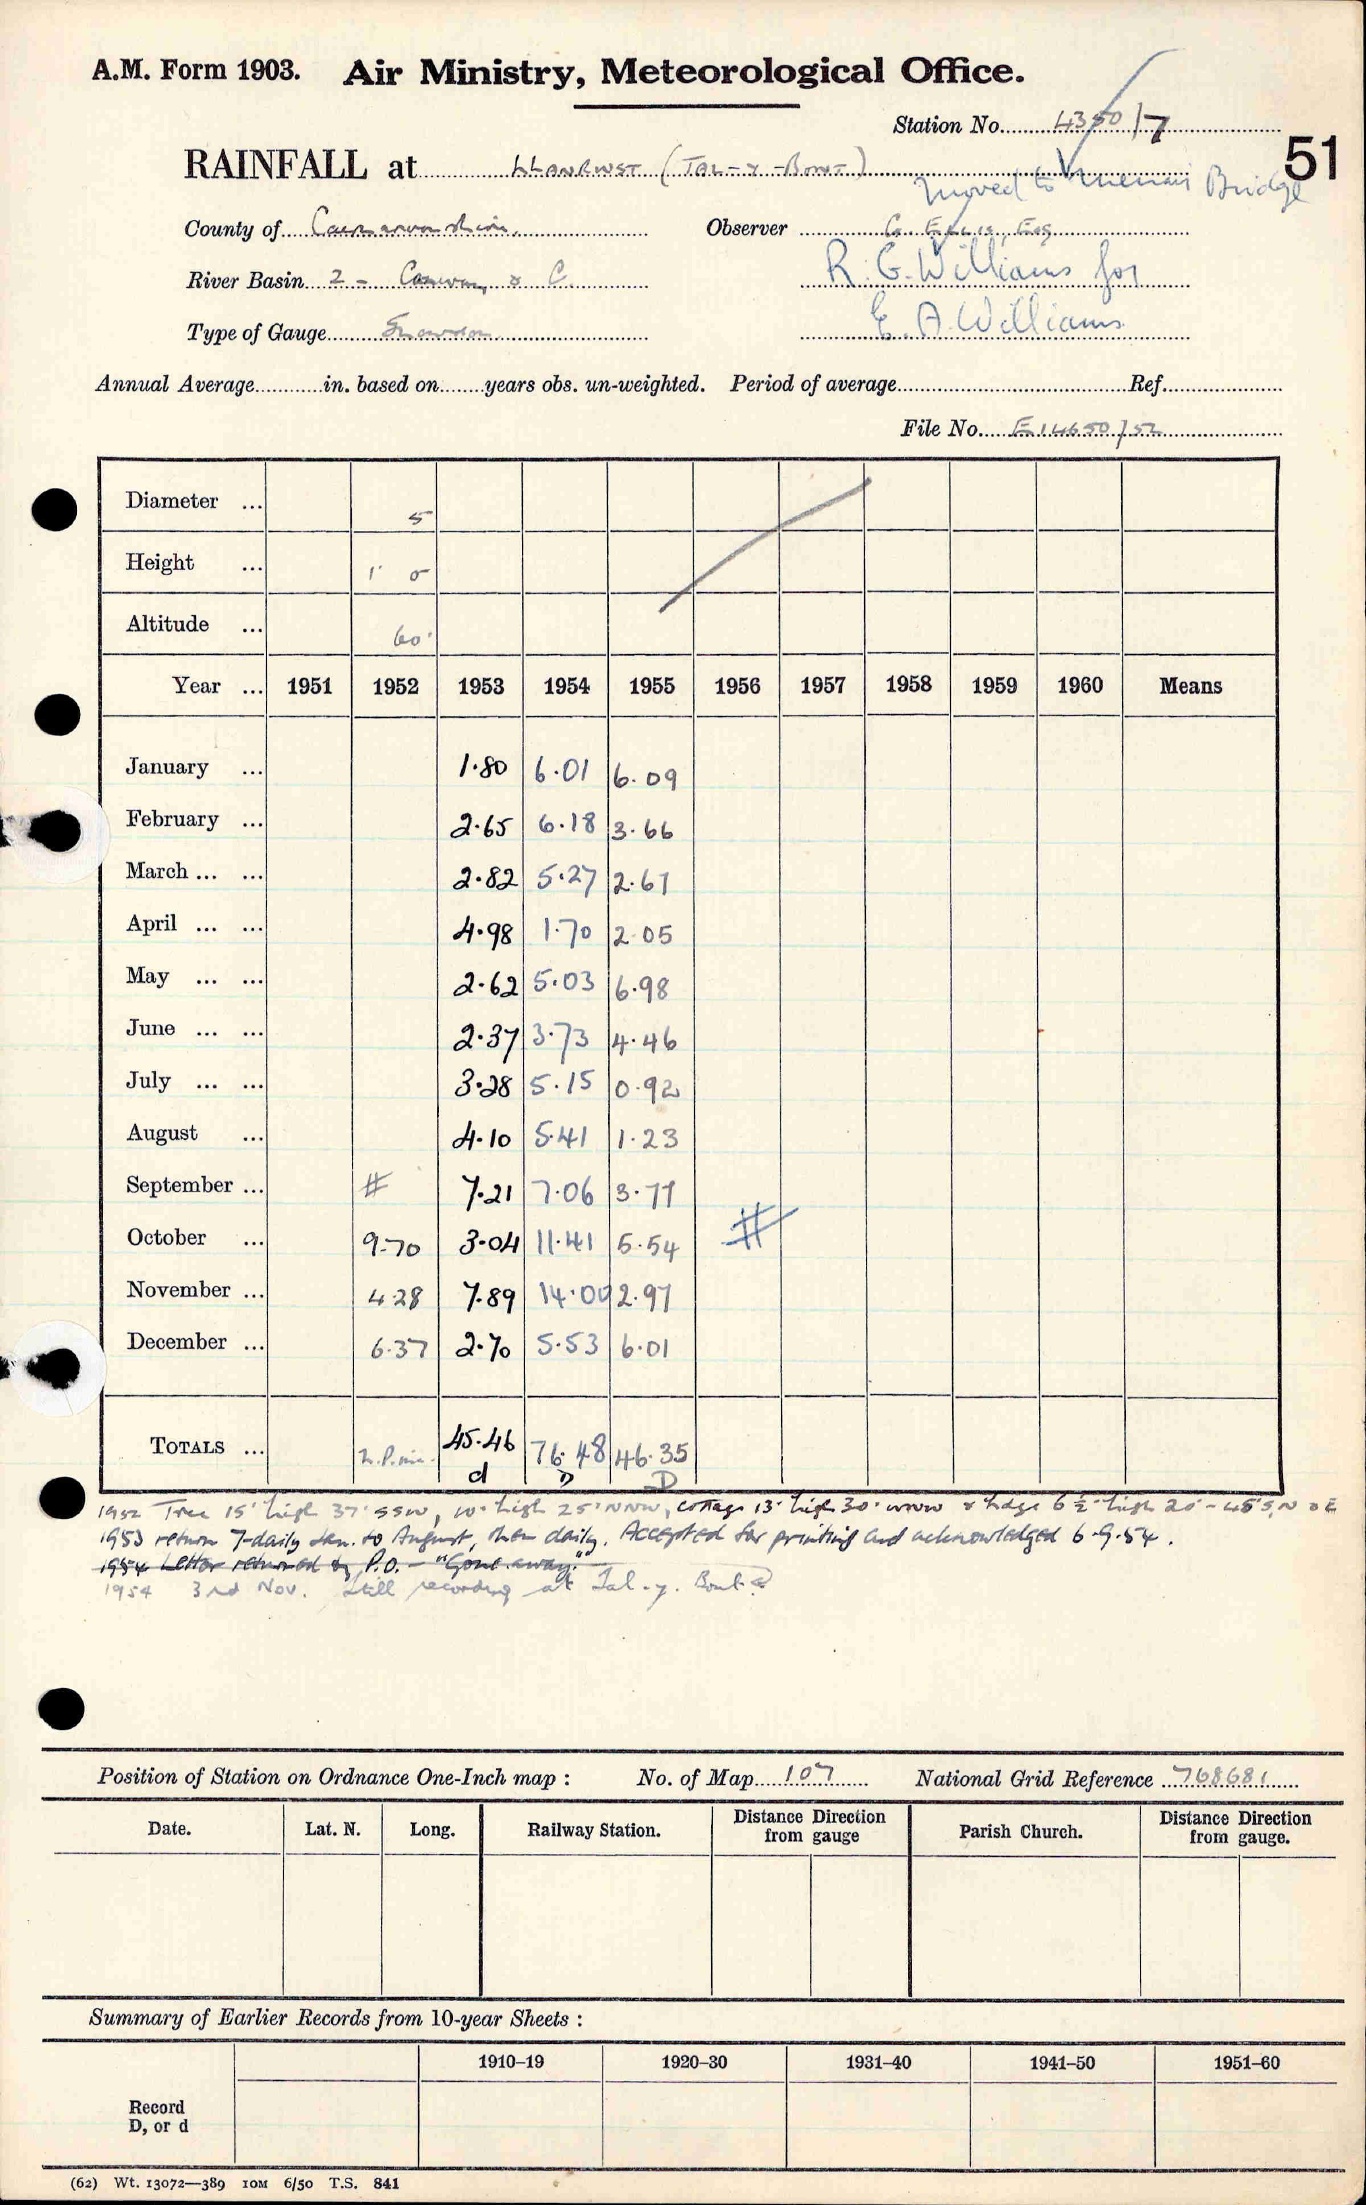 A.M. Form 1903. Air Ministry, Meteorological Office.
Station No. 4350/7
51
RAINFALL at LLANRWST (TAL-Y-BONT)
Moved to Menai Bridge
County of Caernarvonshire. Observer G. Ellis, Esq
River Basin 2 - Conway & C. R. G. Williams for
Type of Gauge Snowdon E. A. Williams
Annual Average in. based on years obs. un-weighted. Period of average Ref.
File No. E14650/52
Diameter ... 5
Height ... 1' 0
Altitude ... 60'
Year ... 1951 1952 1953 1954 1955 1956 1957 1958 1959 1960 Means
January ... 1.80 6.01 6.09
February ... 2.65 6.18 3.66
March ... ... 2.82 5.27 2.67
April ... ... 4.98 1.70 2.05
May ... ... 2.62 5.03 6.98
June ... ... 2.37 3.73 4.46
July ... ... 3.28 5.15 0.92
August ... 4.10 5.41 1.23
September ... # 7.21 7.06 3.77
October ... 9.70 3.04 11.41 5.54 #
November ... 4.28 7.89 14.00 2.97
December ... 6.37 2.70 5.53 6.01
TOTALS ... 45.46 76.48 46.35
d D D
1952 Tree 15' high 37' SSW, 10' high 25' NNW, cottage 13' high 30' WNW & hedge 6½' high 20'-45' S, N & E
1953 return 7-daily Jan. to August, then daily. Accepted for printing and acknowledged 6.9.54.
1954 Letter returned by P.O. - "Gone away."
1954 3rd Nov. Still recording at Tal-y-Bont
Position of Station on Ordnance One-Inch map : No. of Map 107 National Grid Reference 768681
Date. Lat. N. Long. Railway Station. Distance Direction from gauge Parish Church. Distance Direction from gauge.
Summary of Earlier Records from 10-year Sheets :
1910–19 1920–30 1931–40 1941–50 1951–60
Record
D, or d
(62) Wt. 13072—389 10M 6/50 T.S. 841